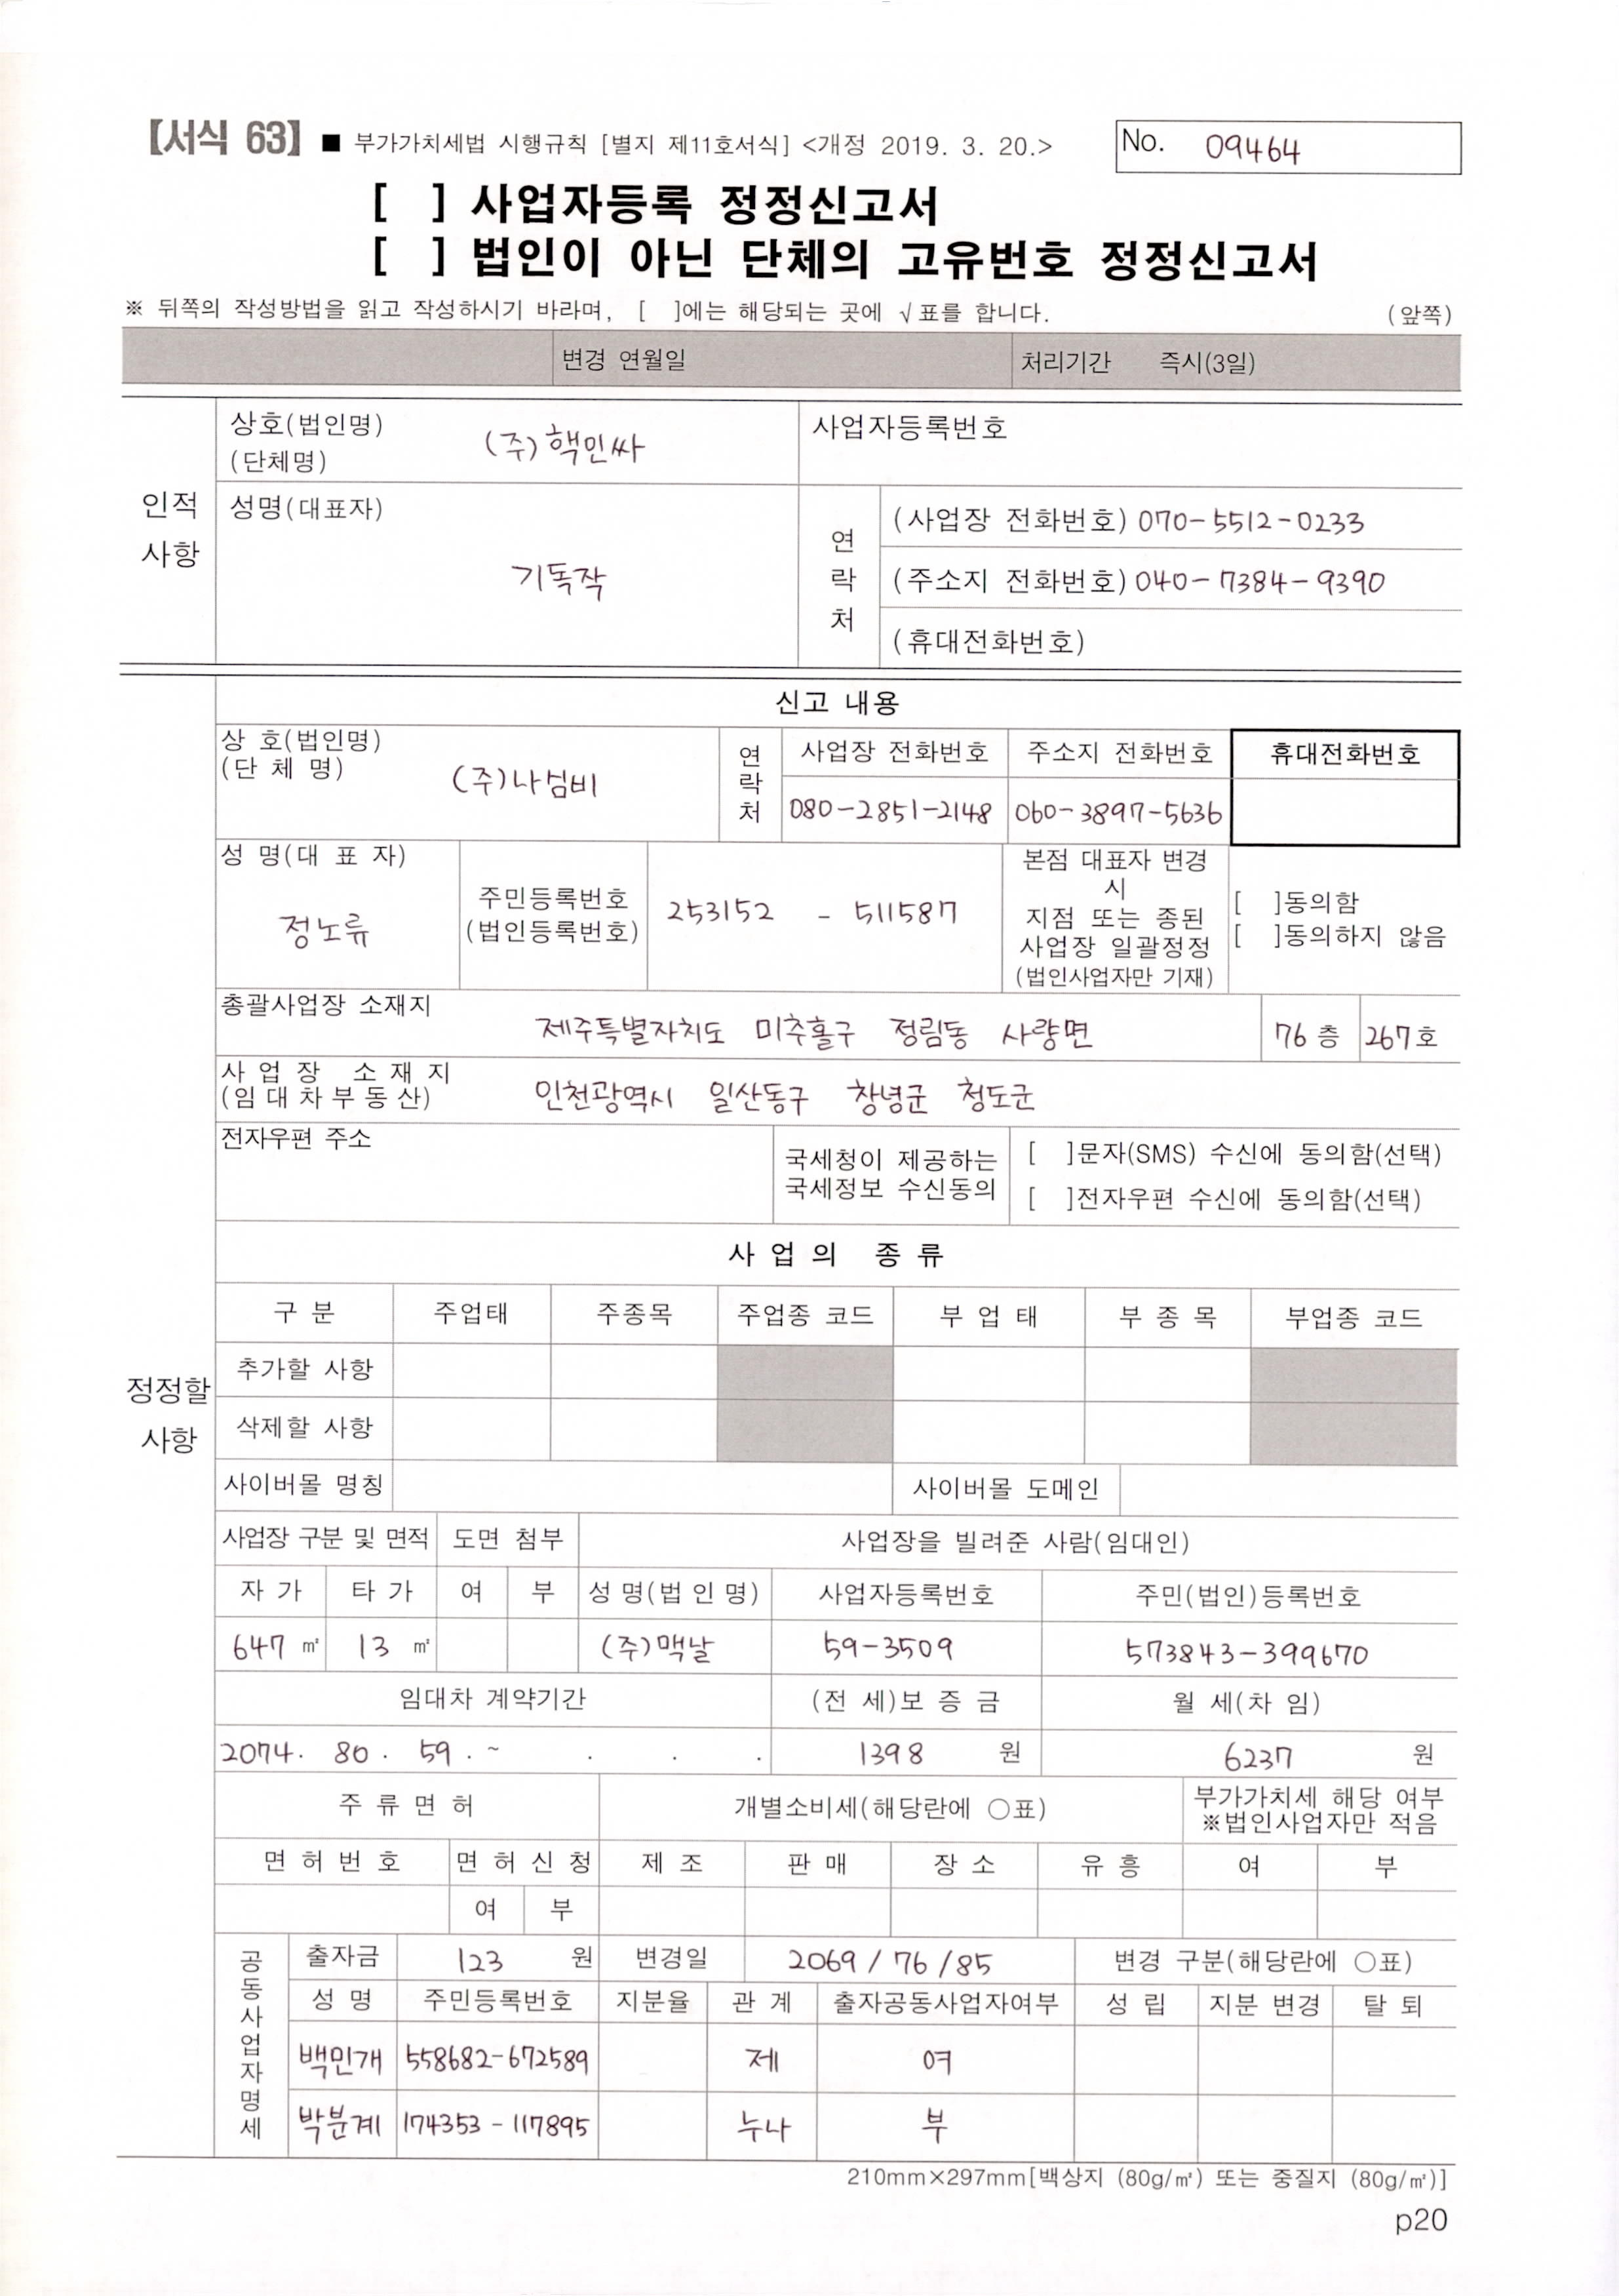 【서식 63】 ■ 부가가치세법 시행규칙 [별지 제11호서식] <개정 2019. 3. 20.>
No. 09464
[ ] 사업자등록 정정신고서
[ ] 법인이 아닌 단체의 고유번호 정정신고서
※ 뒤쪽의 작성방법을 읽고 작성하시기 바라며, [ ]에는 해당되는 곳에 √표를 합니다. (앞쪽)
변경 연월일 처리기간 즉시(3일)
인적
사항
상호(법인명)
(단체명)
(주)핵인싸
사업자등록번호
성명(대표자)
기독작
연
락
처
(사업장 전화번호) 070-5512-0233
(주소지 전화번호) 040-7384-9390
(휴대전화번호)
정정할
사항
신고 내용
상 호(법인명)
(단 체 명)
(주)나넘비
연
락
처
사업장 전화번호 주소지 전화번호 휴대전화번호
080-2851-2148 060-3897-5636
성 명(대 표 자)
정노류
주민등록번호
(법인등록번호)
253152 - 511587
본점 대표자 변경
시
지점 또는 종된
사업장 일괄정정
(법인사업자만 기재)
[ ]동의함
[ ]동의하지 않음
총괄사업장 소재지
제주특별자치도 미추홀구 정림동 사량면 76 층 267호
사 업 장 소 재 지
(임 대 차 부 동 산)
인천광역시 일산동구 창녕군 청도군
전자우편 주소
국세청이 제공하는
국세정보 수신동의
[ ]문자(SMS) 수신에 동의함(선택)
[ ]전자우편 수신에 동의함(선택)
사 업 의 종 류
구 분 주업태 주종목 주업종 코드 부 업 태 부 종 목 부업종 코드
추가할 사항
삭제할 사항
사이버몰 명칭 사이버몰 도메인
사업장 구분 및 면적 도면 첨부 사업장을 빌려준 사람(임대인)
자 가 타 가 여 부 성 명(법 인 명) 사업자등록번호 주민(법인)등록번호
647 ㎡ 13 ㎡ (주)맥날 59-3509 573843-399670
임대차 계약기간 (전 세)보 증 금 월 세(차 임)
2074. 80. 59. ~ . . . 1398 원 6237 원
주 류 면 허 개별소비세(해당란에 ○표) 부가가치세 해당 여부
※법인사업자만 적음
면 허 번 호 면 허 신 청 제 조 판 매 장 소 유 흥 여 부
여 부
공
동
사
업
자
명
세
출자금 123 원 변경일 2069 / 76 /85 변경 구분(해당란에 ○표)
성 명 주민등록번호 지분율 관 계 출자공동사업자여부 성 립 지분 변경 탈 퇴
백민개 558682-672589 제 여
박분계 174353 - 117895 누나 부
210mm×297mm[백상지 (80g/㎡) 또는 중질지 (80g/㎡)]
p20